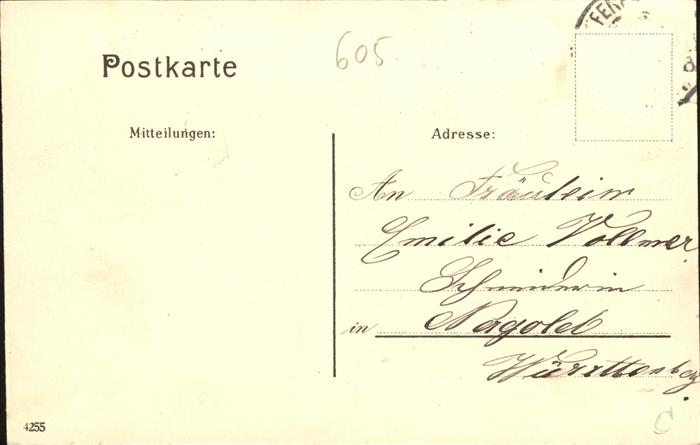 Postkarte
605
Mitteilungen:
Adresse:
An Fräulein
Emilie Vollmer
Schneiderin
in Nagold
Württemberg.
4255
C